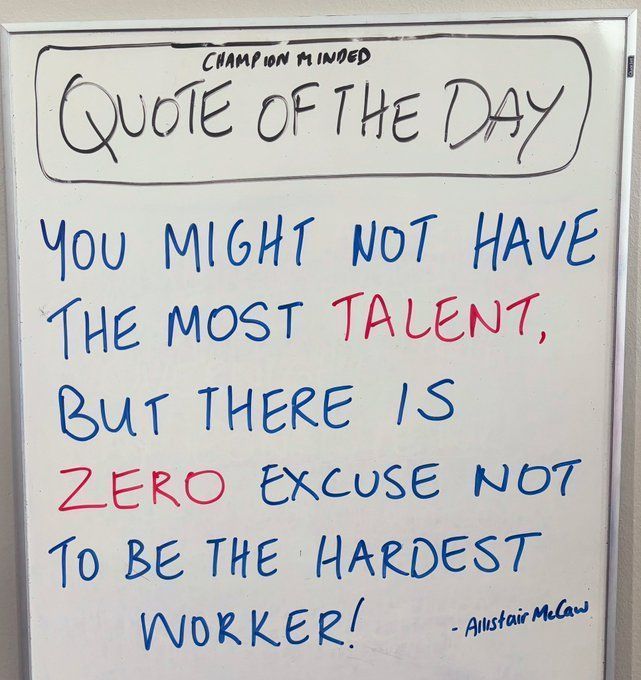 CHAMPION MINDED
QUOTE OF THE DAY
YOU MIGHT NOT HAVE
THE MOST TALENT,
BUT THERE IS
ZERO EXCUSE NOT
TO BE THE HARDEST
WORKER!
- Allistair McCaw